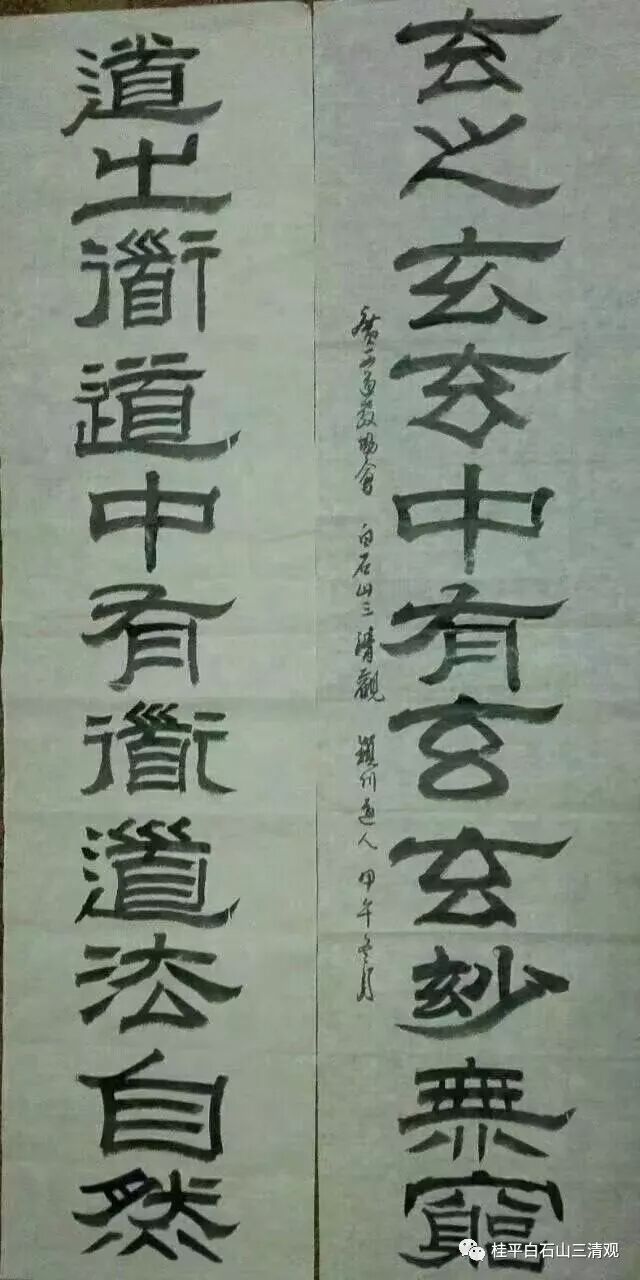 玄之玄玄中有玄玄妙無窮
廣西道教協會 白石山三清觀 道人 甲午冬月
道之衜道中有衜道法自然
桂平白石山三清观